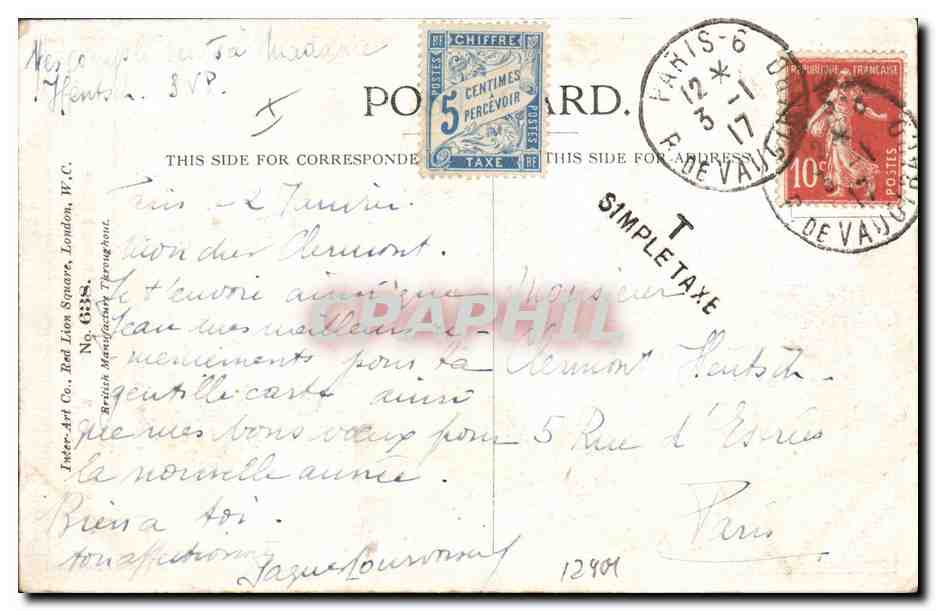 Mes compli
Hentsch. SVP.
POST CARD.
THIS SIDE FOR CORRESPONDE
THIS SIDE FOR ADDRESS
CHIFFRE
POSTES RF
5 CENTIMES
À
PERCEVOIR
POSTES
TAXE RF
PARIS-6
12 * 3 -1 17
R. DE VAUGIRARD
REPUBLIQUE FRANÇAISE
10c
POSTES
R. DE VAUGIRARD
T
SIMPLE TAXE
Inter-Art Co., Red Lion Square, London, W.C.
No. 638.
British Manufacture Throughout.
Paris 2 Janvier
Mon cher Clermont.
Je t'envoie ainsi que
Jean mes meilleurs re-
merciements pour ta
gentille carte ainsi
que mes bons vœux pour
la nouvelle année.
Bien a toi.
ton affectionné
Monsieur
Clermont Hentsch.
5 Rue d'
Paris
12401
CPAPHIL